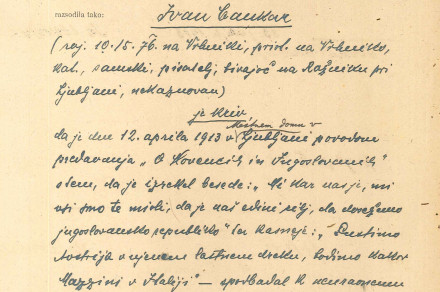 razsodila tako:
Ivan Cankar
(roj. 10./5. 76. na Vrhniki, prist. na Vrhniko,
kat., samski, pisatelj, bivajoč na Rožniku pri
Ljubljani, nekaznovan)
je kriv,
Mestnem domu v
da je dne 12. aprila 1913 v Ljubljani povodom
predavanja „O Slovencih in Jugoslovanih"
s tem, da je izrekel besede: „Mi kar nas je, mi
vsi smo te misli, da je naš edini cilj, da dosežemo
jugoslovansko republiko" in kasneje: „Pustimo
Avstrijo v njenem lastnem dreku, hodimo kakor
Mazzini v Italiji" — spodbadal k